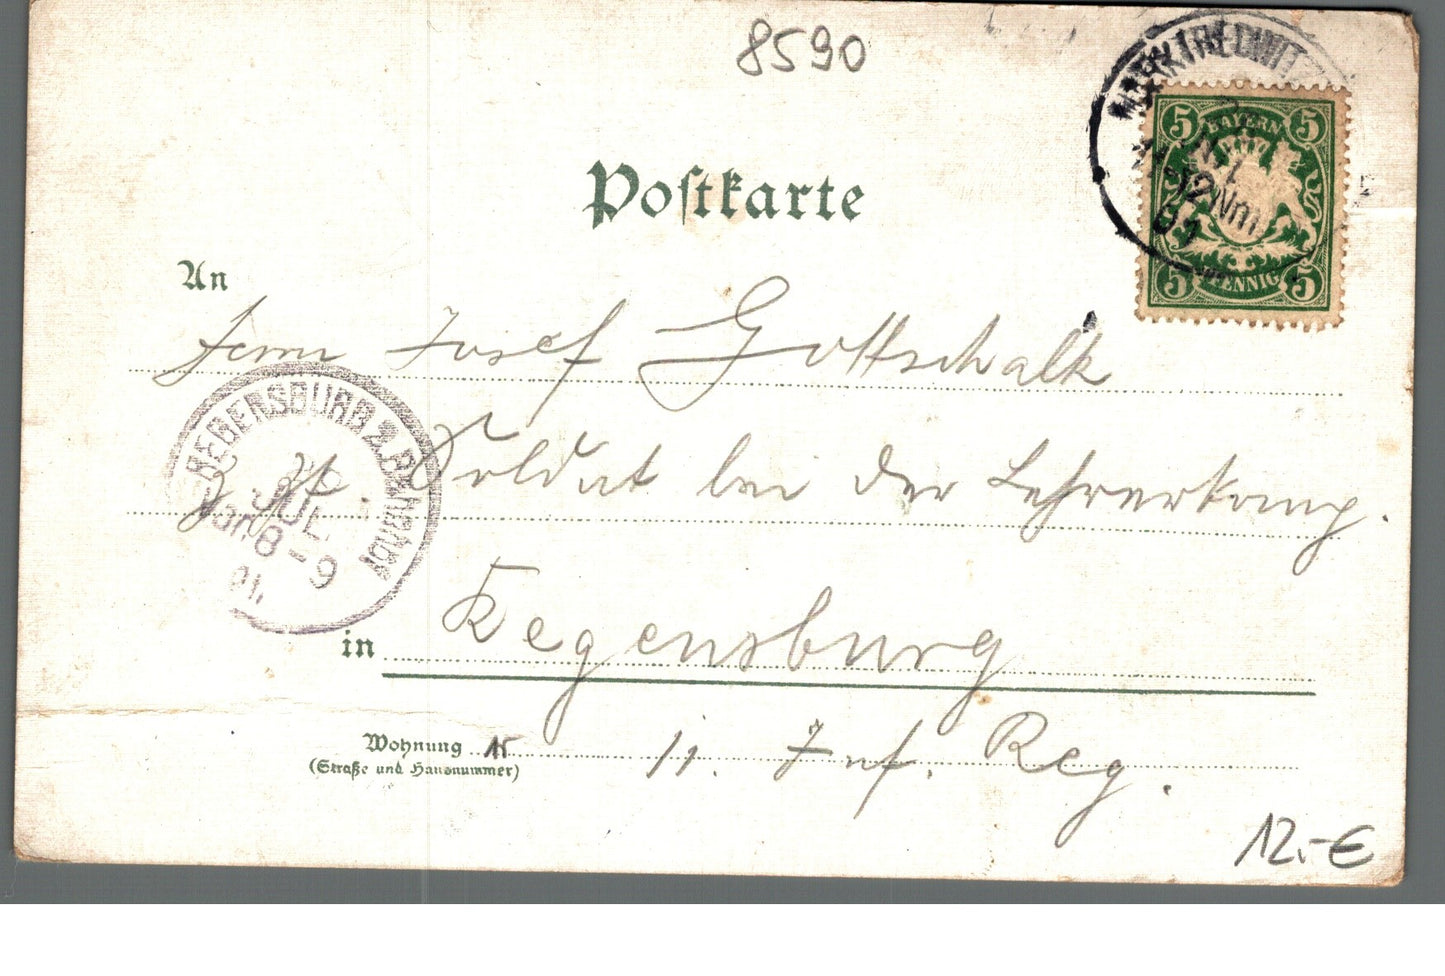 8590
MARKTREDWITZ
5 BAYERN 5
JUL
12 Nm
01
5 PFENNIG 5
Postkarte
An
Herrn Josef Gottschalk
REGENSBURG 2. BAHNHOF
JUL
Vor. 8-9
01.
z. Zt. Soldat bei der Lehrerkomp.
in Regensburg
Wohnung
(Straße und Hausnummer)
11. Inf. Reg.
12.-€